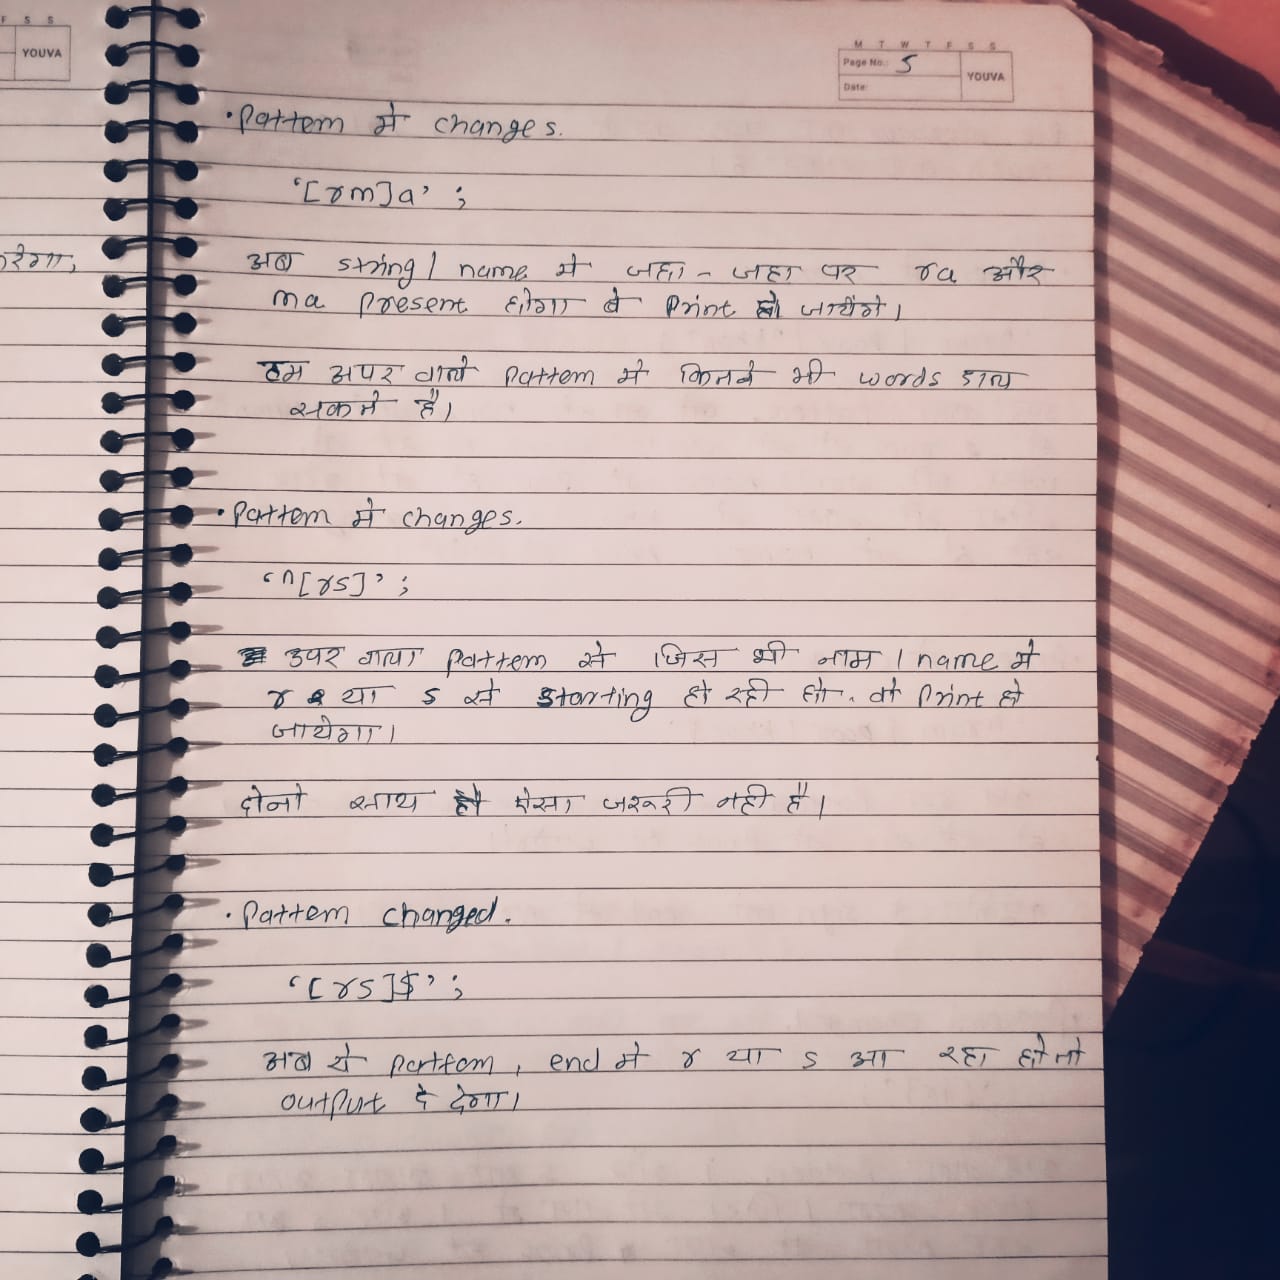 F S S
YOUVA
M T W T F S S
Page No.: 5
Date:
YOUVA
करेगा,
• Pattern मे changes.
‘[rm]a’ ;
अब string / name मे जहा - जहा पर ra और
ma present होगा वे print हो जायेंगे।
हम अपर वाले pattern मे कितने भी words डाल
सकते है।
• Pattern मे changes.
‘^[rs]’ ;
उपर वाला pattern से जिस भी नाम / name मे
r या s से starting हो रही हो. वो print हो
जायेगा।
दोनो साथ हो ऐसा जरूरी नही है।
• Pattern changed.
‘[rs]$’ ;
अब ये pattern, end मे r या s आ रहा हो तो
output दे देगा।